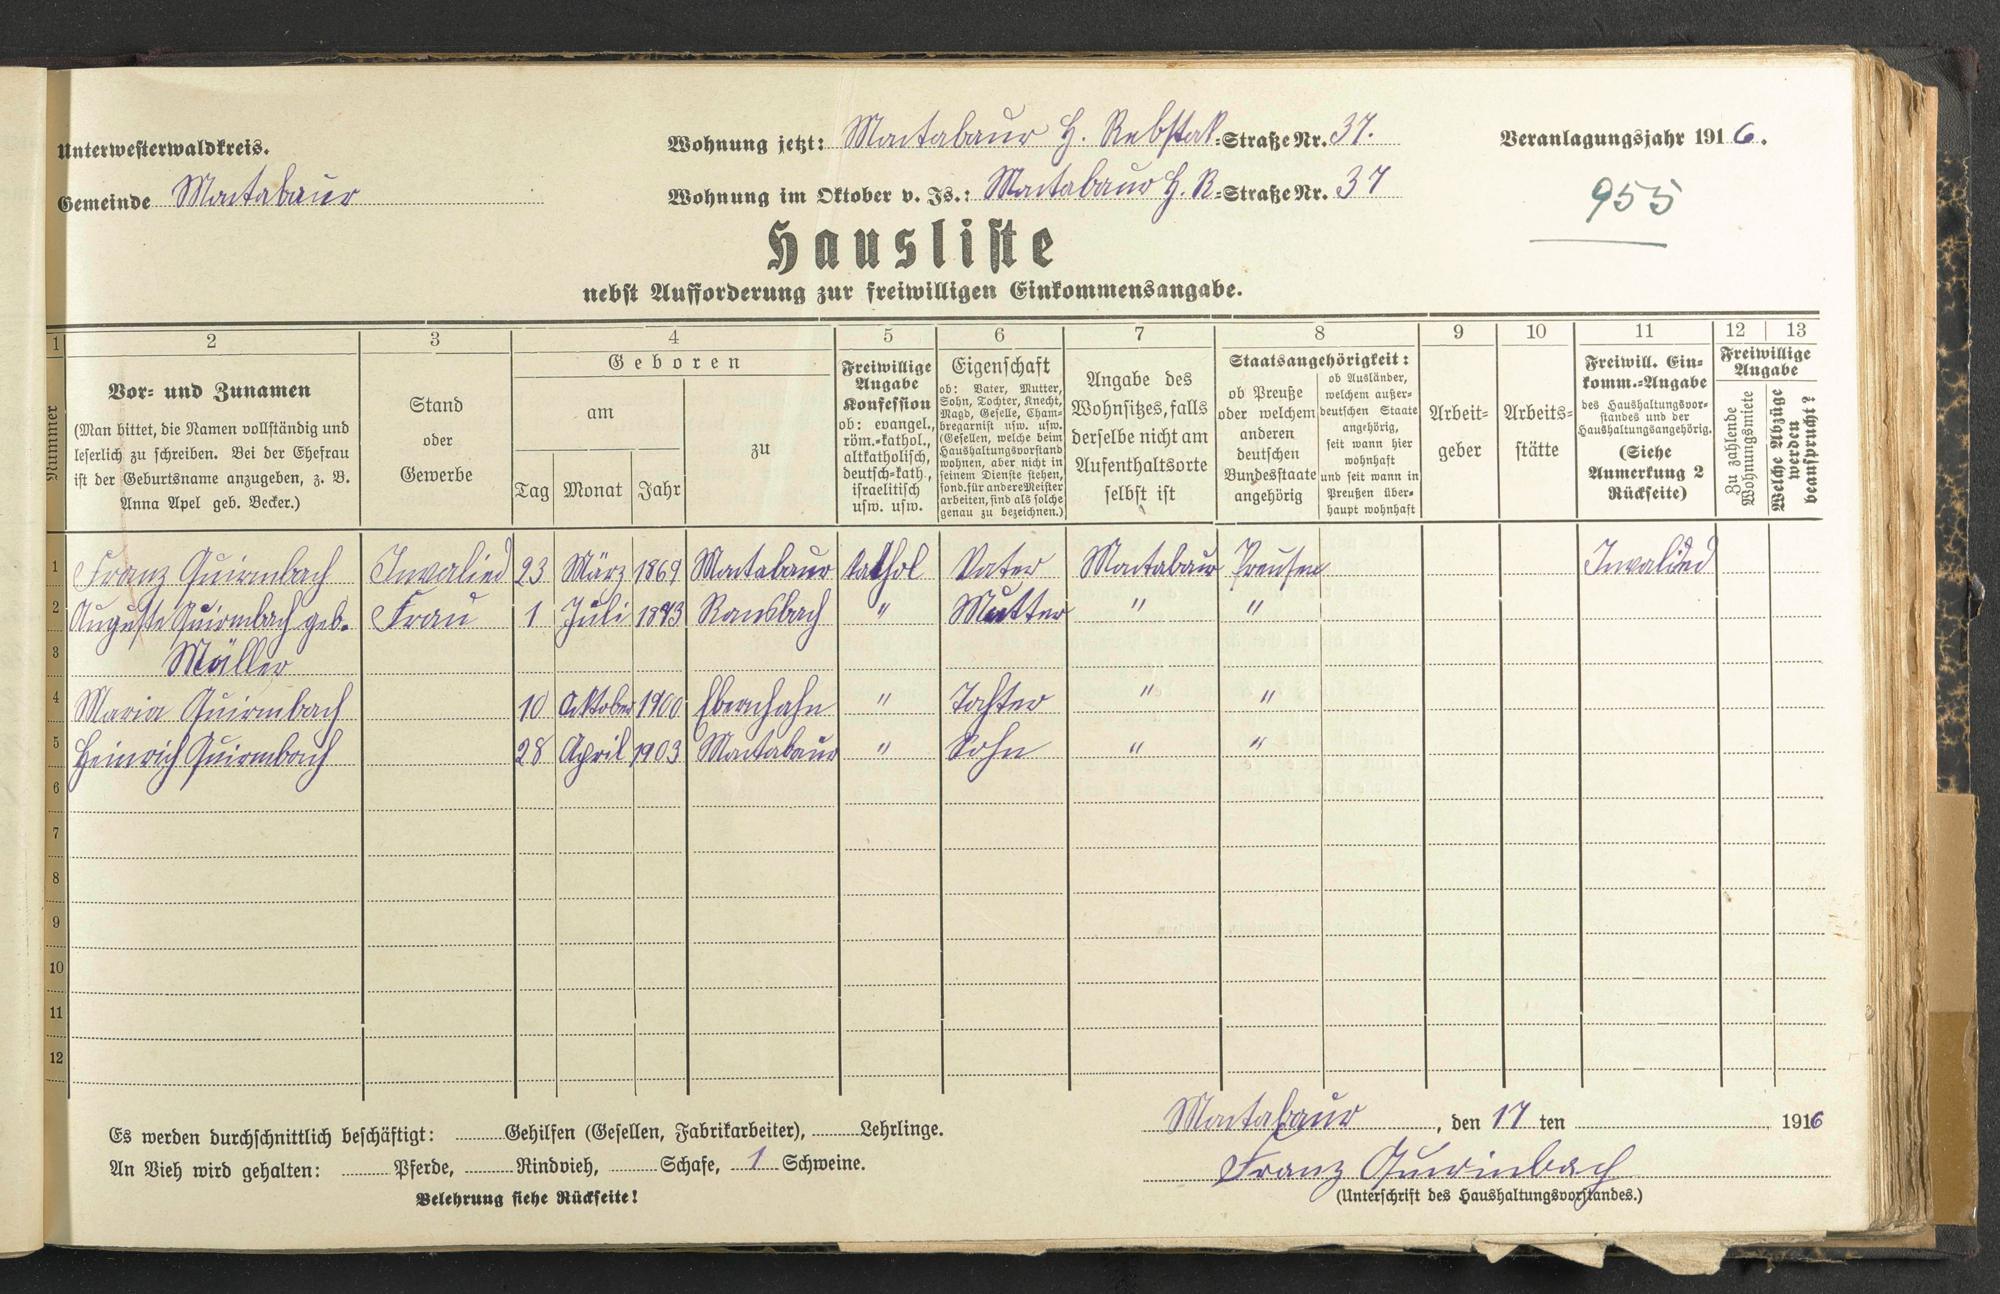 Unterwesterwaldkreis.
Wohnung jetzt: Montabaur H. Rebstok-Straße Nr. 37.
Veranlagungsjahr 1916.
Gemeinde Montabaur
Wohnung im Oktober v. Js.: Montabaur H. R-Straße Nr. 37
955
Hausliste
nebst Aufforderung zur freiwilligen Einkommensangabe.
1 2 3 4 5 6 7 8 9 10 11 12 13
Nummer
Vor- und Zunamen
(Man bittet, die Namen vollständig und
leserlich zu schreiben. Bei der Ehefrau
ist der Geburtsname anzugeben, z. B.
Anna Apel geb. Becker.)
Stand
oder
Gewerbe
Geboren
am
Tag Monat Jahr
zu
Freiwillige
Angabe
Konfession
ob: evangel.,
röm.-kathol.,
altkatholisch,
deutsch-kath.,
israelitisch
usw. usw.
Eigenschaft
ob: Vater, Mutter,
Sohn, Tochter, Knecht,
Magd, Geselle, Cham-
bregarnist usw. usw.
(Gesellen, welche beim
Haushaltungsvorstand
wohnen, aber nicht in
seinem Dienste stehen,
sond. für andere Meister
arbeiten, sind als solche
genau zu bezeichnen.)
Angabe des
Wohnsitzes, falls
derselbe nicht am
Aufenthaltsorte
selbst ist
Staatsangehörigkeit:
ob Preuße
oder welchem
anderen
deutschen
Bundesstaate
angehörig
ob Ausländer,
welchem außer-
deutschen Staate
angehörig,
seit wann hier
wohnhaft
und seit wann in
Preußen über-
haupt wohnhaft
Arbeit-
geber
Arbeits-
stätte
Freiwill. Ein-
komm.-Angabe
des Haushaltungsvor-
standes und der
Haushaltungsangehörig.
(Siehe
Anmerkung 2
Rückseite)
Freiwillige
Angabe
Zu zahlende
Wohnungsmiete
Welche Abzüge
werden
beansprucht?
1 Franz Quirmbach Invalied 23 März 1869 Montabaur Kathol Vater Montabaur Preusen Invalided
2 Auguste Quirmbach geb. Frau 1 Juli 1873 Ransbach " Mutter " "
3 Müller
4 Maria Quirmbach 10 Oktober 1900 Ebernhahn " Tochter " "
5 Heinrich Quirmbach 28 April 1903 Montabaur " Sohn " "
6
7
8
9
10
11
12
Es werden durchschnittlich beschäftigt: Gehilfen (Gesellen, Fabrikarbeiter), Lehrlinge.
Montabaur, den 17 ten 1916
An Vieh wird gehalten: Pferde, Rindvieh, Schafe, 1 Schweine.
Franz Quirinbach
Belehrung siehe Rückseite!
(Unterschrift des Haushaltungsvorstandes.)